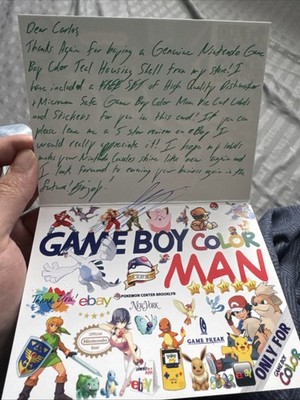 Dear Carlos
Thanks Again for buying a Genuine Nintendo Game
Boy Color Teal Housing Shell from my store! I
have included a FREE SET of High Quality Dishwasher
& Microwave Safe Game Boy Color Man Die Cut Labels
and Stickers for you in this card! If you can
please leave me a 5 star review on eBay! I
would really appreciate it!! I hope my labels
make your Nintendo Consoles shine like new again and
I look forward to earning your business again in the
future!
GAME BOY COLOR
MAN
Thank you!
ebay
POKEMON CENTER BROOKLYN
New York
Official
Nintendo
Seal
GAME FREAK
ebay
ONLY FOR
GAME BOY
COLOR